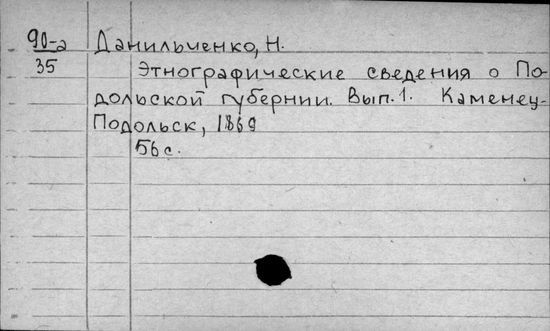 90-а Данильченко, Н.
35 Этнографические сведения о По-
дольской губернии. Вып. 1. Каменец-
Подольск, 1869
56 с.